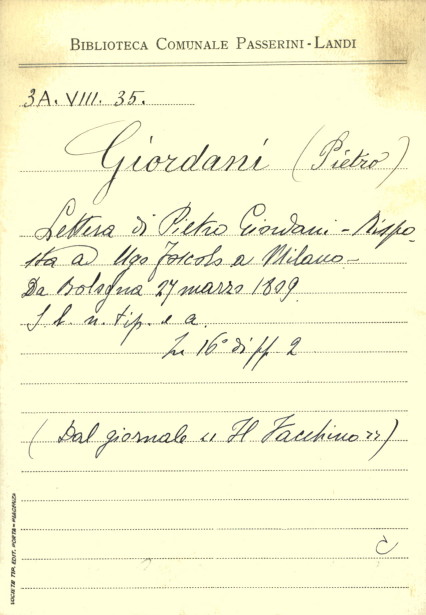 BIBLIOTECA COMUNALE PASSERINI-LANDI
3A. VIII. 35.
Giordani (Pietro)
Lettera di Pietro Giordani - Rispo-
sta a Ugo Foscolo a Milano -
Da Bologna 27 marzo 1809
S. l. n. tip. e a.
In 16° di pp. 2
(Dal giornale « Il Facchino »)
C